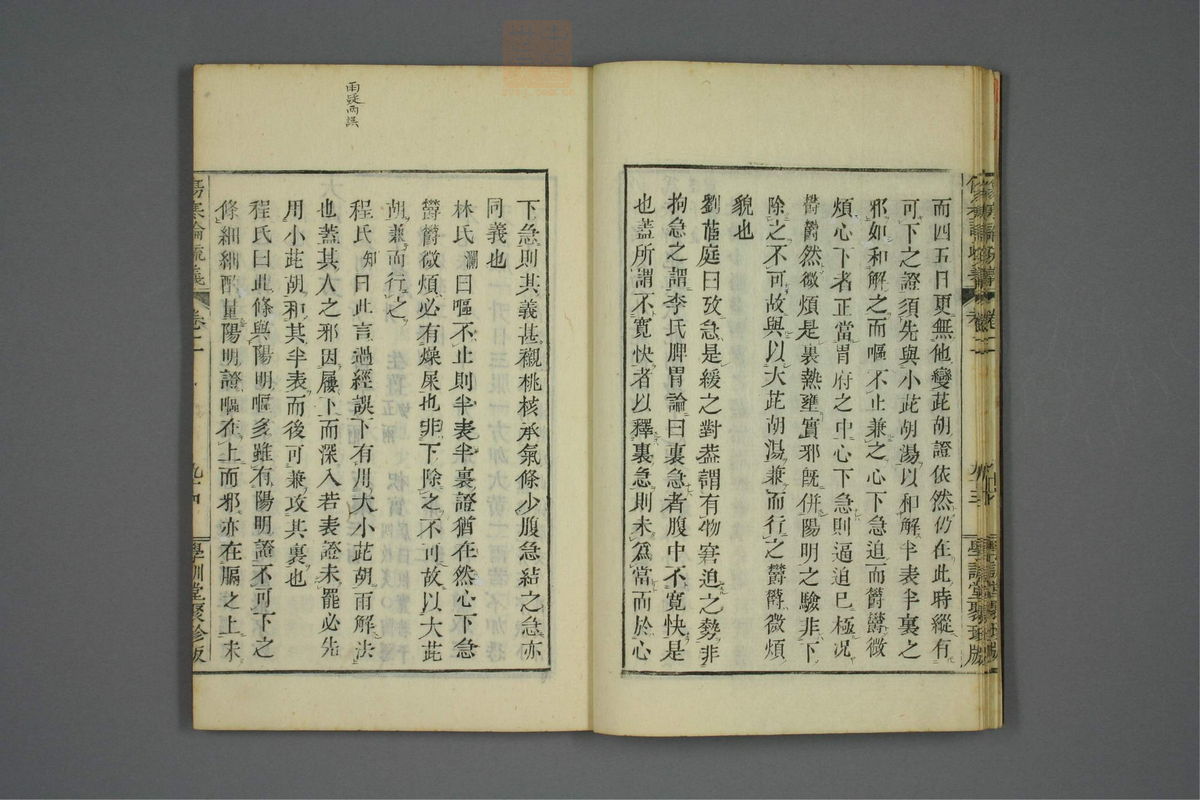 而四五日更無他變茈胡證依然仍在此時縱有
可下之證須先與小茈胡湯以和解半表半裏之
邪如和解之而嘔不止兼之心下急迫而鬱鬱微
煩心下者正當胃府之中心下急則逼迫已極況
鬱鬱然微煩是裏熱壅實邪既併陽明之驗非下
除之不可故與以大茈胡湯兼而行之鬱鬱微煩
貌也
劉茝庭曰攷急是緩之對葢謂有物窘迫之勢非
拘急之謂李氏脾胃論曰裏急者腹中不寬快是
也蓋所謂不寬快者以釋裏急則未爲當而於心
下急則其義甚襯桃核承氣條少腹急結之急亦
同義也
林氏瀾曰嘔不止則半表半裏證猶在然心下急
鬱鬱微煩必有燥屎也非下除之不可故以大茈
胡兼而行之
程氏知曰此言過經誤下有用大小茈胡雨解法
也蓋其人之邪因屢下而深入若表證未罷必先
用小茈胡和其半表而後可兼攻其裏也
程氏曰此條與陽明嘔多雖有陽明證不可下之
條細細酌量陽明證嘔在上而邪亦在膈之上未
雨疑兩誤
傷寒論疏義
卷二
九十四
學訓堂聚珍版